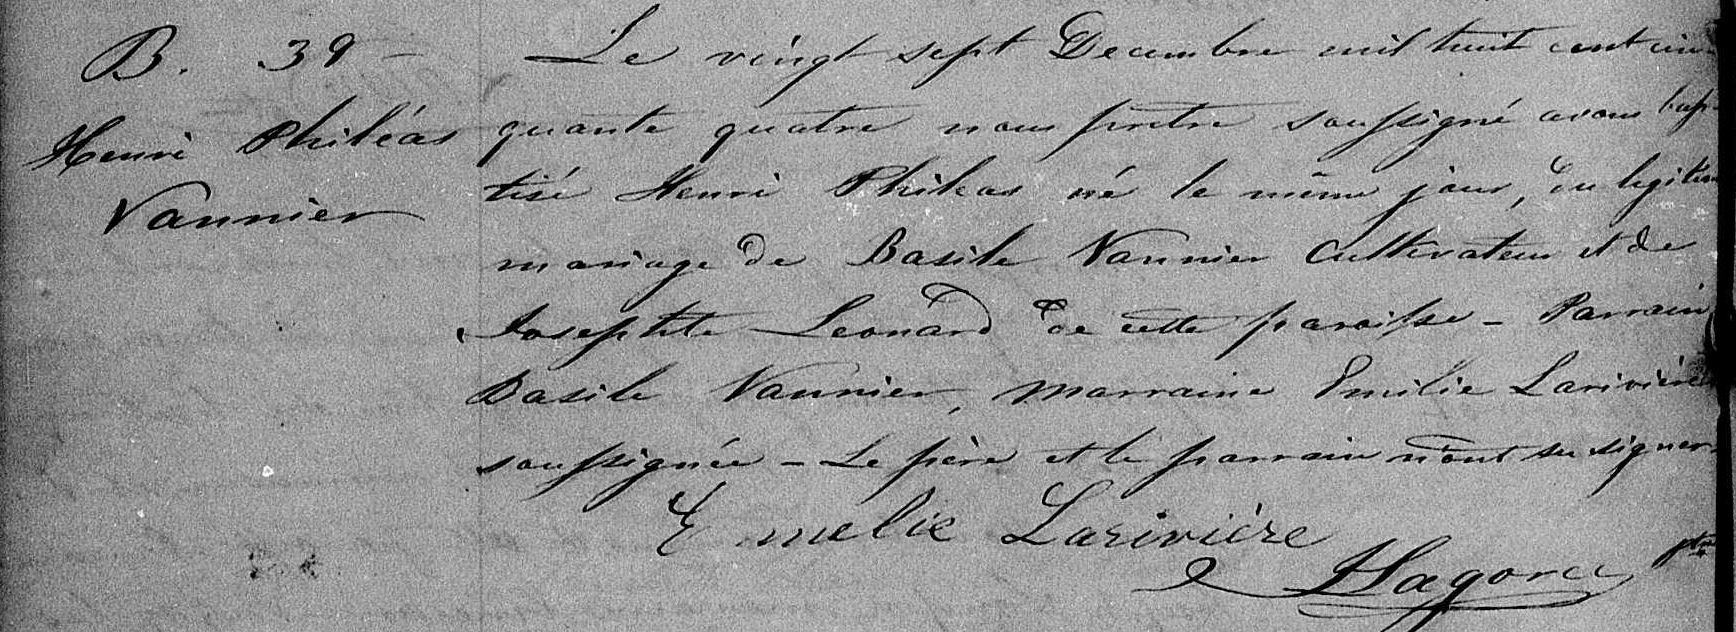 B. 39 -
Henri Philéas
Vannier
Le vingt sept Decembre mil huit cent cin-
quante quatre nous prêtre soussigné avons bap-
tisé Henri Phileas né le même jour, du legitime
mariage de Basile Vannier Cultivateur et de
Josephte Leonard de cette paroisse - Parrain
Basile Vannier, marraine Emilie Larivière
soussignée - Le père et le parrain n'ont su signer
Emelie Larivière
ptre